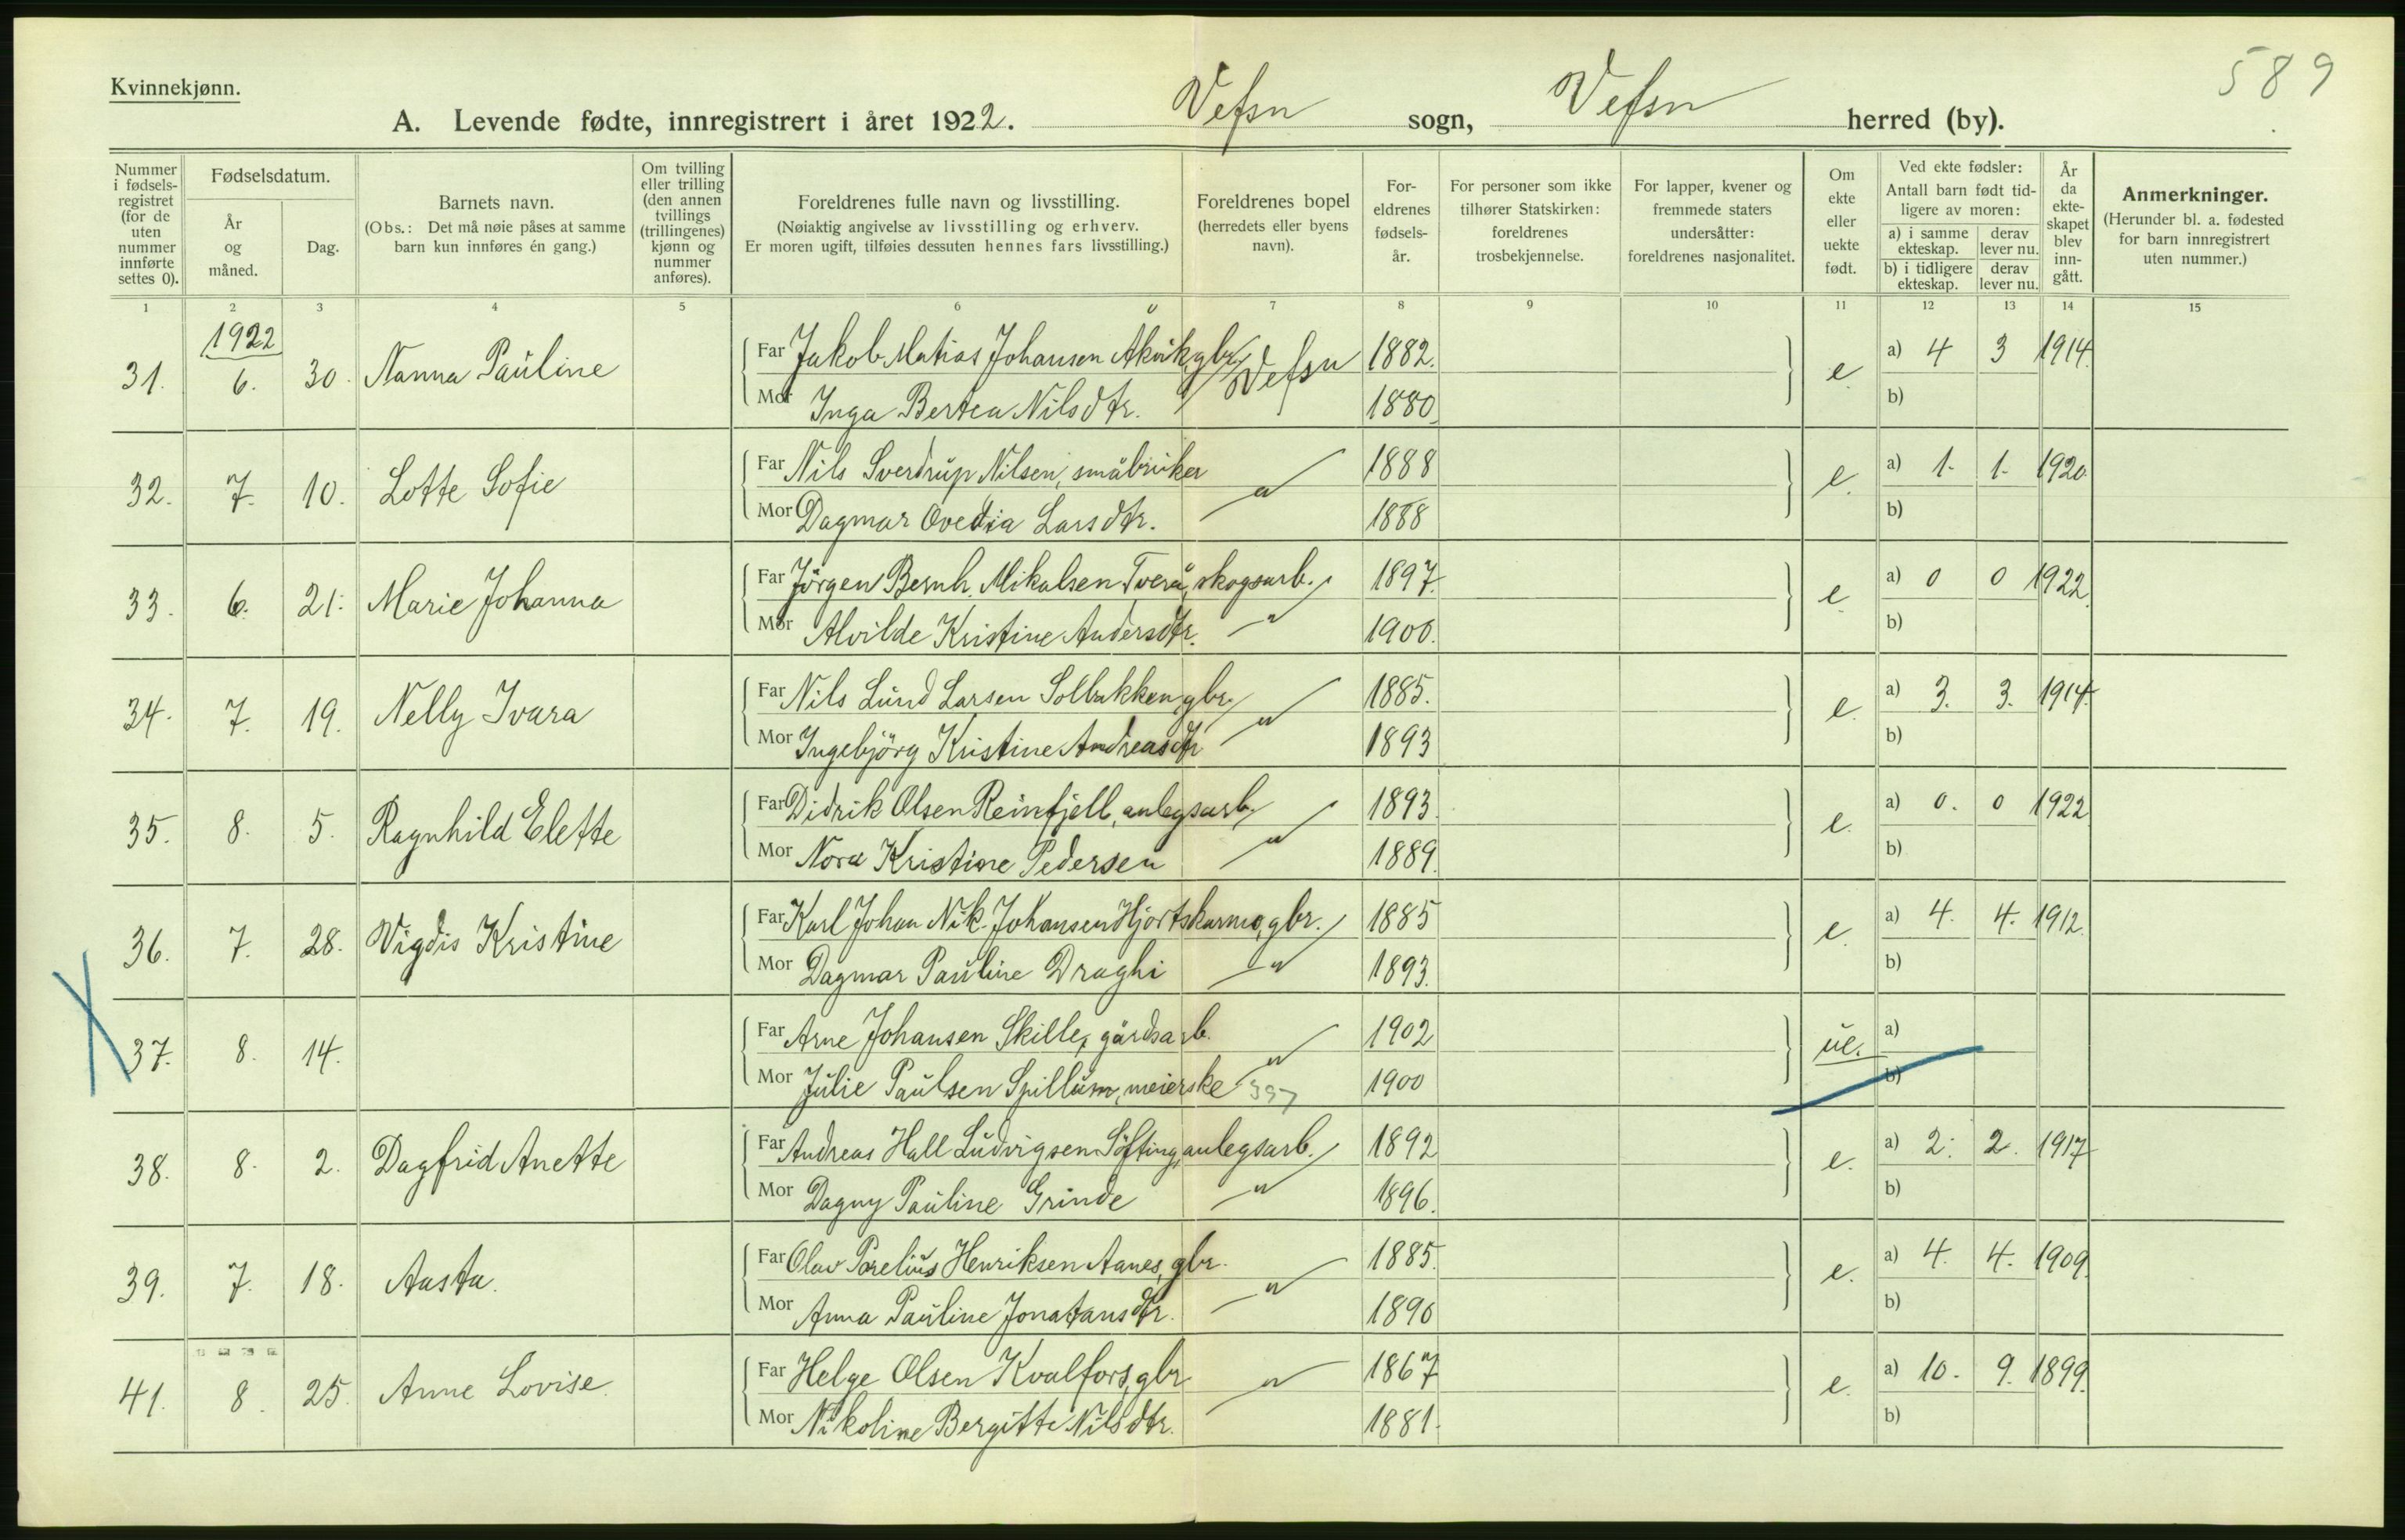 589
Kvinnekjønn.
A. Levende fødte, innregistrert i året 1922. Vefsn sogn, Vefsn herred (by).
Nummer i fødselsregistret (for de uten nummer innførte settes 0).
Fødselsdatum.
År og måned.
Dag.
Barnets navn.
(Obs.: Det må nøie påses at samme barn kun innføres én gang.)
Om tvilling eller trilling (den annen tvillings (trillingenes) kjønn og nummer anføres).
Foreldrenes fulle navn og livsstilling.
(Nøiaktig angivelse av livsstilling og erhverv.
Er moren ugift, tilføies dessuten hennes fars livsstilling.)
Foreldrenes bopel (herredets eller byens navn).
Foreldrenes fødselsår.
For personer som ikke tilhører Statskirken: foreldrenes trosbekjennelse.
For lapper, kvener og fremmede staters undersåtter: foreldrenes nasjonalitet.
Om ekte eller uekte født.
Ved ekte fødsler:
Antall barn født tidligere av moren:
a) i samme ekteskap. derav lever nu.
b) i tidligere ekteskap. derav lever nu.
År da ekteskapet blev inngått.
Anmerkninger.
(Herunder bl. a. fødested for barn innregistrert uten nummer.)
1 2 3 4 5 6 7 8 9 10 11 12 13 14 15
1922
31. 6. 30. Nanna Pauline Far Jakob Matias Johansen Åkvik, gbr. Vefsn 1882. e. a) 4 3 1914
Mor Inga Bertea Nilsdtr. 1880. b)
32. 7. 10. Lotte Sofie Far Nils Sverdrup Nilsen, småbruker 1888 e. a) 1. 1. 1920.
Mor Dagmar Ovedia Larsdtr. — " — 1888 b)
33. 6. 21. Marie Johanna Far Jörgen Bernh. Mikalsen Tverå, skogsarb. 1897. e. a) 0 0 1922.
Mor Alvilde Kristine Andersdtr. — " — 1900. b)
34. 7. 19. Nelly Ivara Far Nils Lund Larsen Solbakken, gbr. 1885. e. a) 3. 3. 1914.
Mor Ingebjörg Kristine Andreasdtr — " — 1893 b)
35. 8. 5. Ragnhild Elette Far Didrik Olsen Reinfjell, anlegsarb. 1893. e. a) 0. 0 1922
Mor Nora Kristine Pedersen — " — 1889. b)
36. 7. 28. Vigdis Kristine Far Karl Johan Nik. Johansen Hjortskarmo, gbr. 1885 e. a) 4. 4. 1912.
Mor Dagmar Pauline Draghi — " — 1893. b)
37. 8. 14. Far Arne Johansen Skille, gårdsarb. 1902 ue. a)
Mor Julie Paulsen Spillum, meierske — " — 397 1900 b)
38. 8. 2. Dagfrid Anette Far Andreas Hall Ludvigsen Söfting, anlegsarb. 1892 e. a) 2. 2. 1917
Mor Dagny Pauline Grinde — " — 1896. b)
39. 7. 18. Aasta. Far Olav Parelius Henriksen Aanes, gbr. 1885. e. a) 4. 4. 1909.
Mor Anna Pauline Jonatansdtr. — " — 1890 b)
41. 8. 25. Anne Lovise. Far Helge Olsen Kvalfors, gbr. 1867 e. a) 10. 9. 1899.
Mor Nikoline Bergitte Nilsdtr. — " — 1881. b)